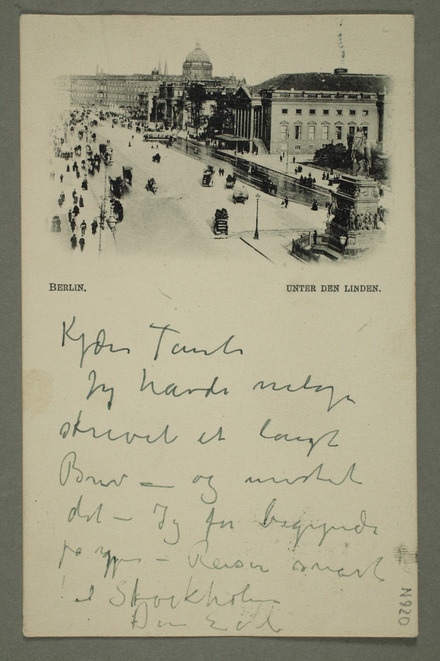 BERLIN. UNTER DEN LINDEN.
Kjære Tante
Jeg havde netop
skrevet et langt
Brev — og mistet
det — Jeg får begynde
på nyt — Reiser snart
til Stockholm
Din
N920